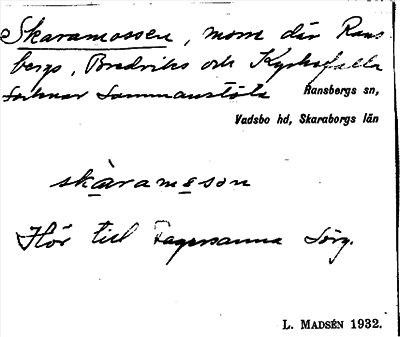 Skaramossen, mom där Rans-
bergs, Bredviks och Kyrkefalla
socknar sammanstöta Ransbergs sn,
Vadsbo hd, Skaraborgs län
skàramɵsən
Hör till Fagersanna Sörg.
L. MADSÉN 1932.